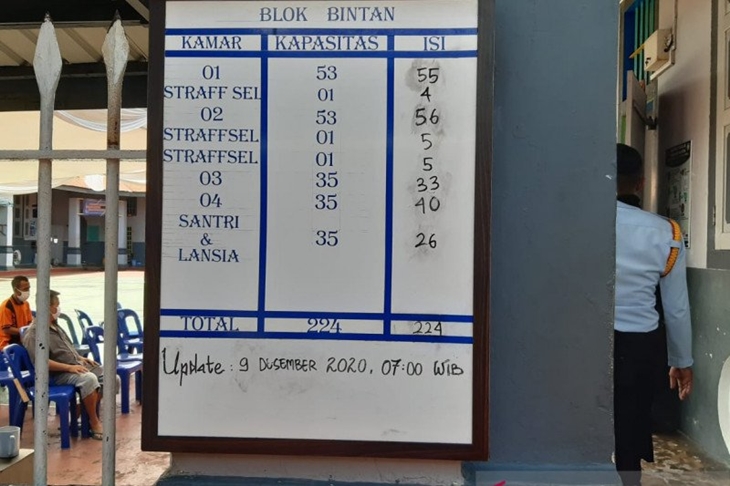 BLOK BINTAN
KAMAR KAPASITAS ISI
01 53 55
STRAFF SEL 01 4
02 53 56
STRAFFSEL 01 5
STRAFFSEL 01 5
03 35 33
04 35 40
SANTRI
& 35 26
LANSIA
TOTAL 224 224
Update : 9 DUSEMBER 2020, 07:00 WIB